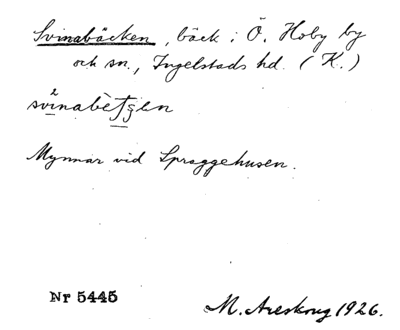 Svinabäcken, bäck i Ö. Hoby by
och sn., Ingelstads hd. (K.)
Mynnar vid Spraggehusen.
Nr 5445
M. Areskog 1926.